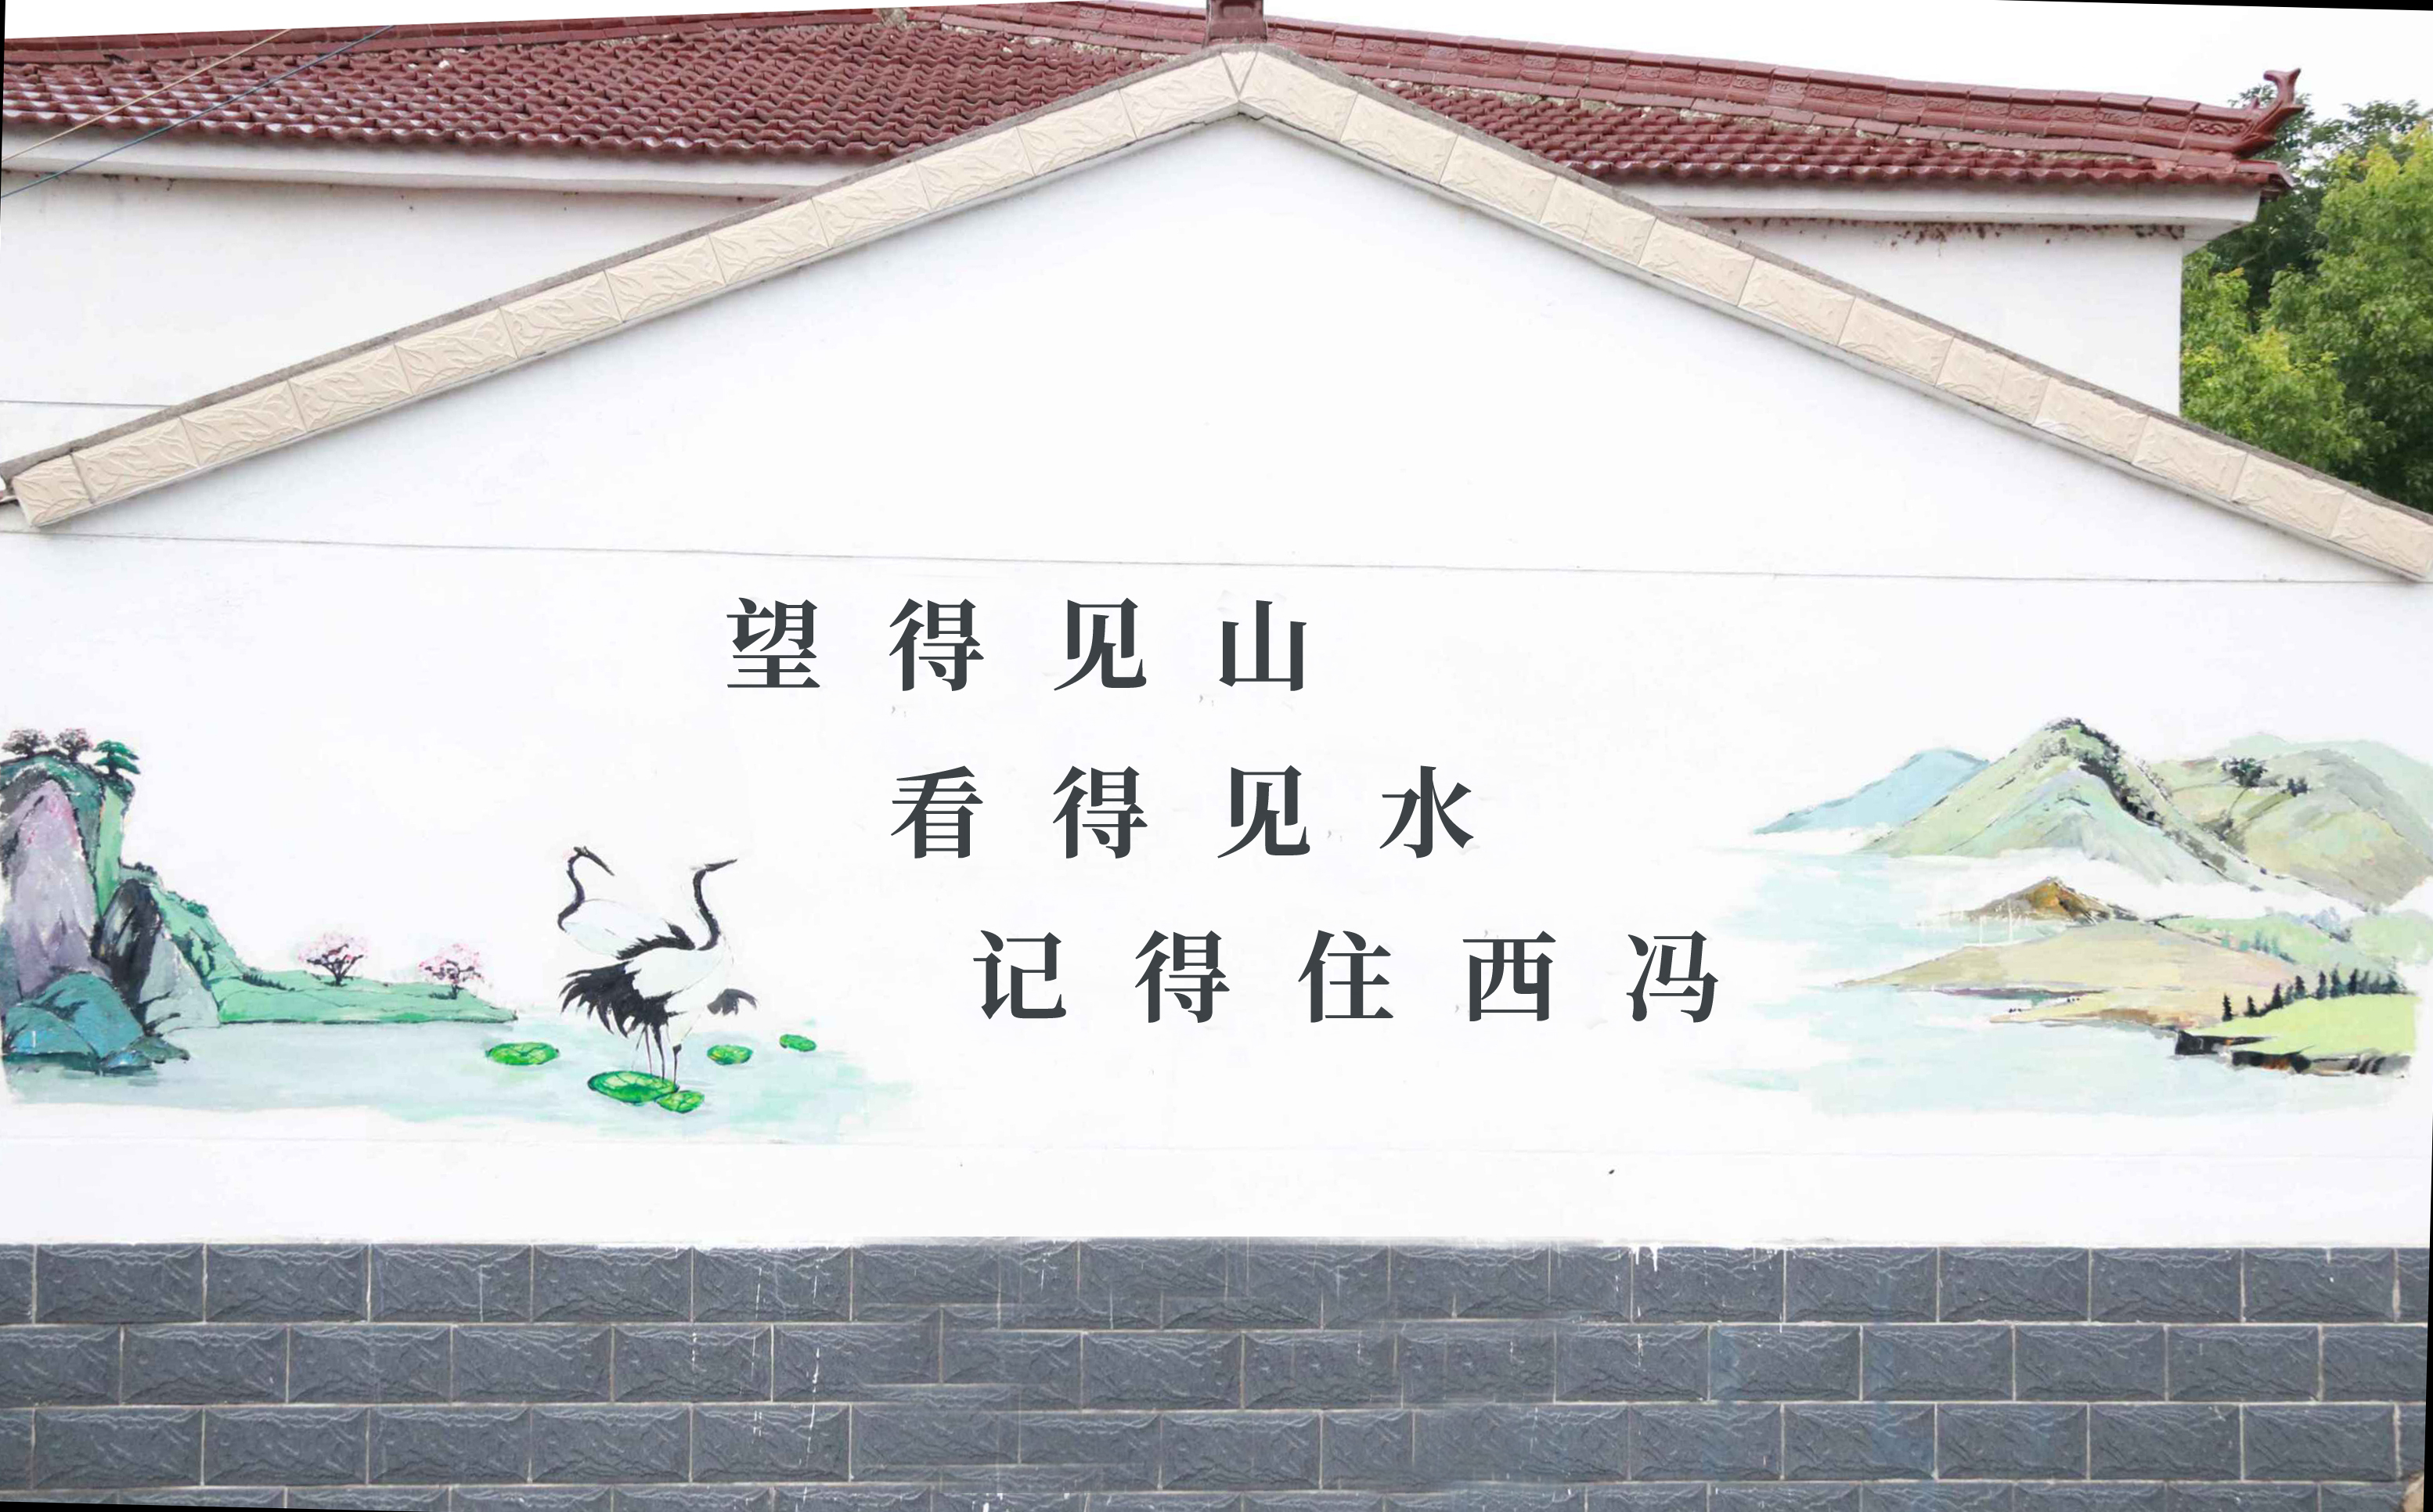 望得见山
看得见水
记得住西冯